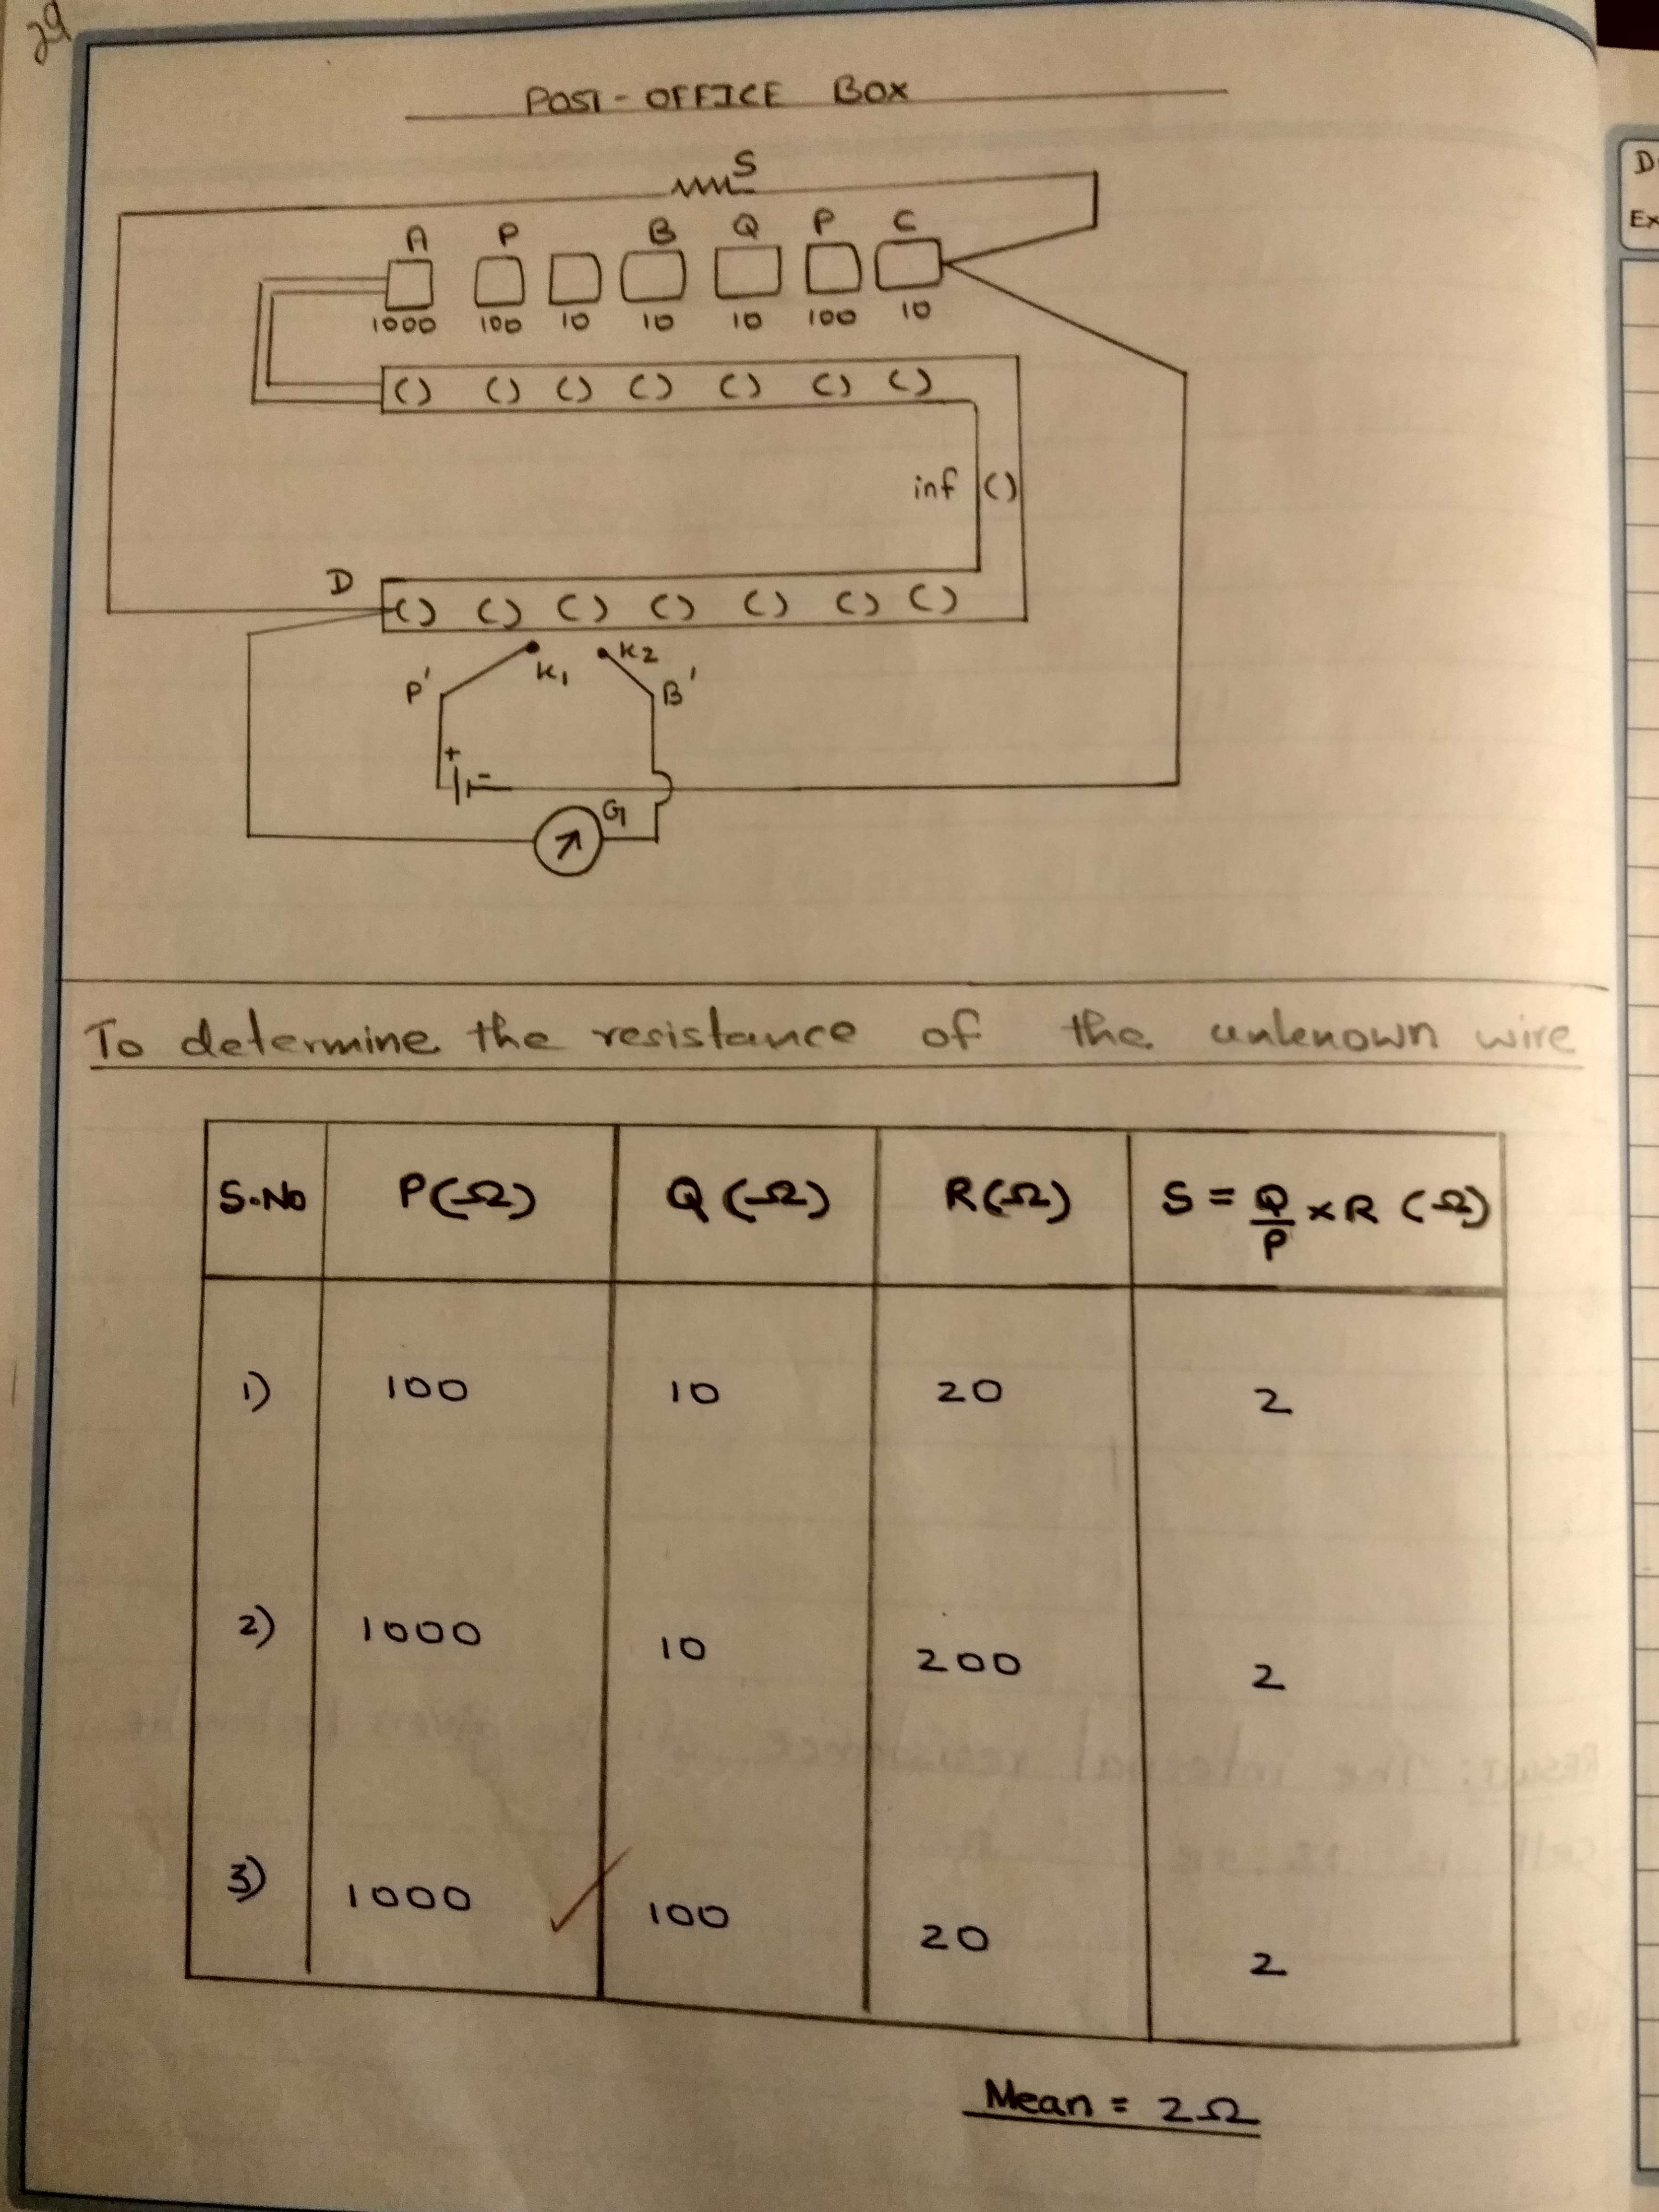 29
POST-OFFICE BOX
S
A P B Q P C
1000 100 10 10 10 100 10
() () () () () () ()
inf ()
D
() () () () () () ()
K1 K2
P' B'
+ -
G
To determine the resistance of the unknown wire
S.No P(Ω) Q(Ω) R(Ω) S = Q/P × R (Ω)
1) 100 10 20 2
2) 1000 10 200 2
3) 1000 100 20 2
Mean = 2Ω
D
Ex